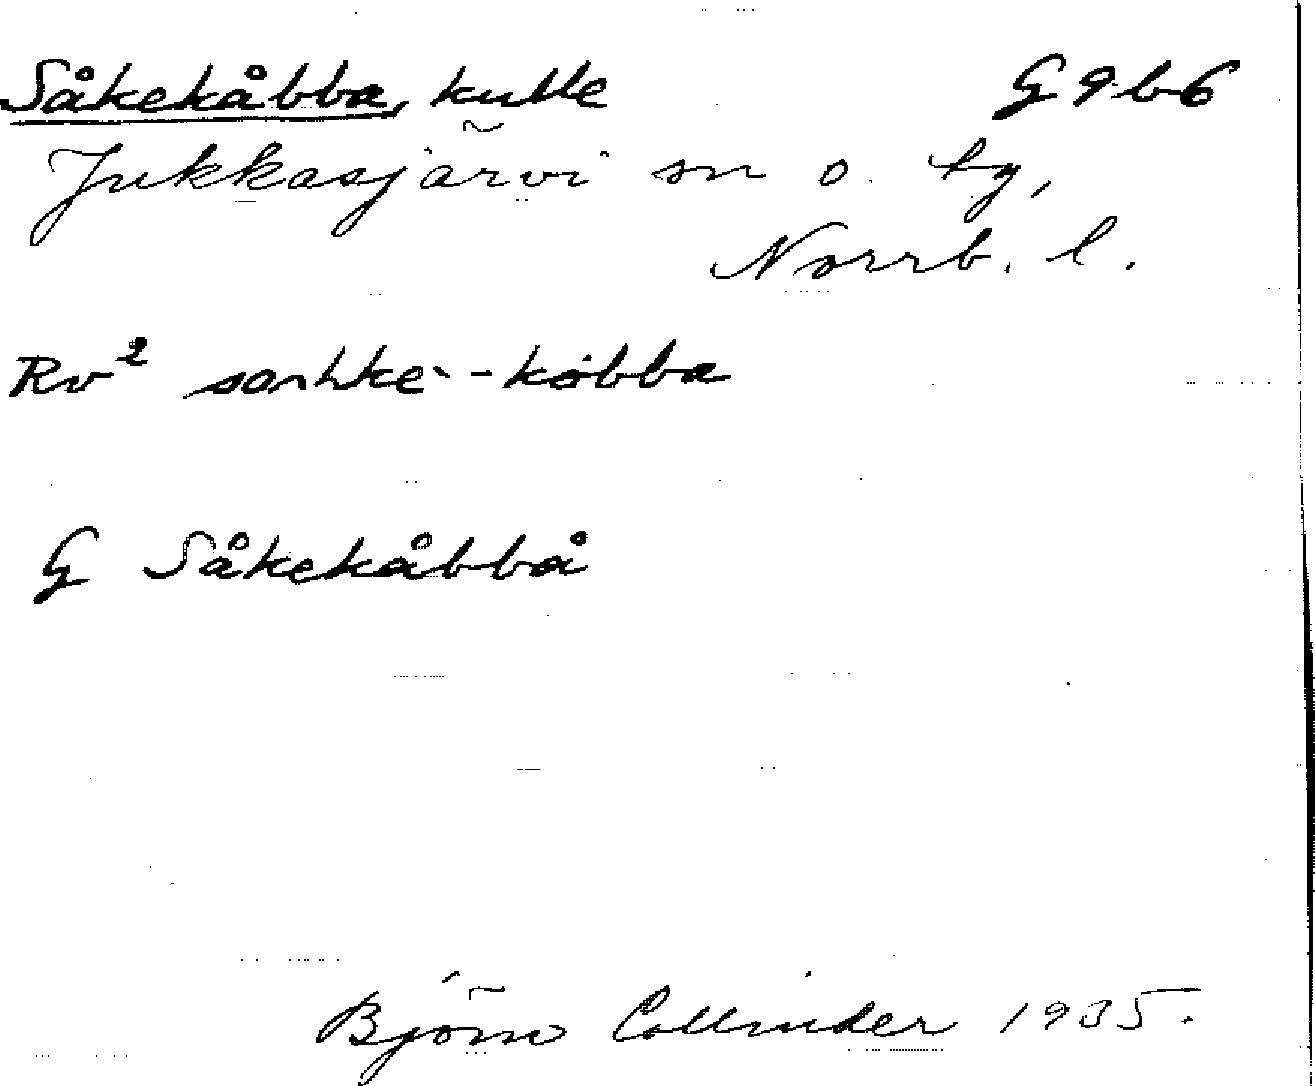 Såkekåbba, kulle G9b6
Jukkasjärvi sn o. tg,
Norrb. l.
Rv² -kobba
G Såkekåbbå
Björn Collinder 1935.